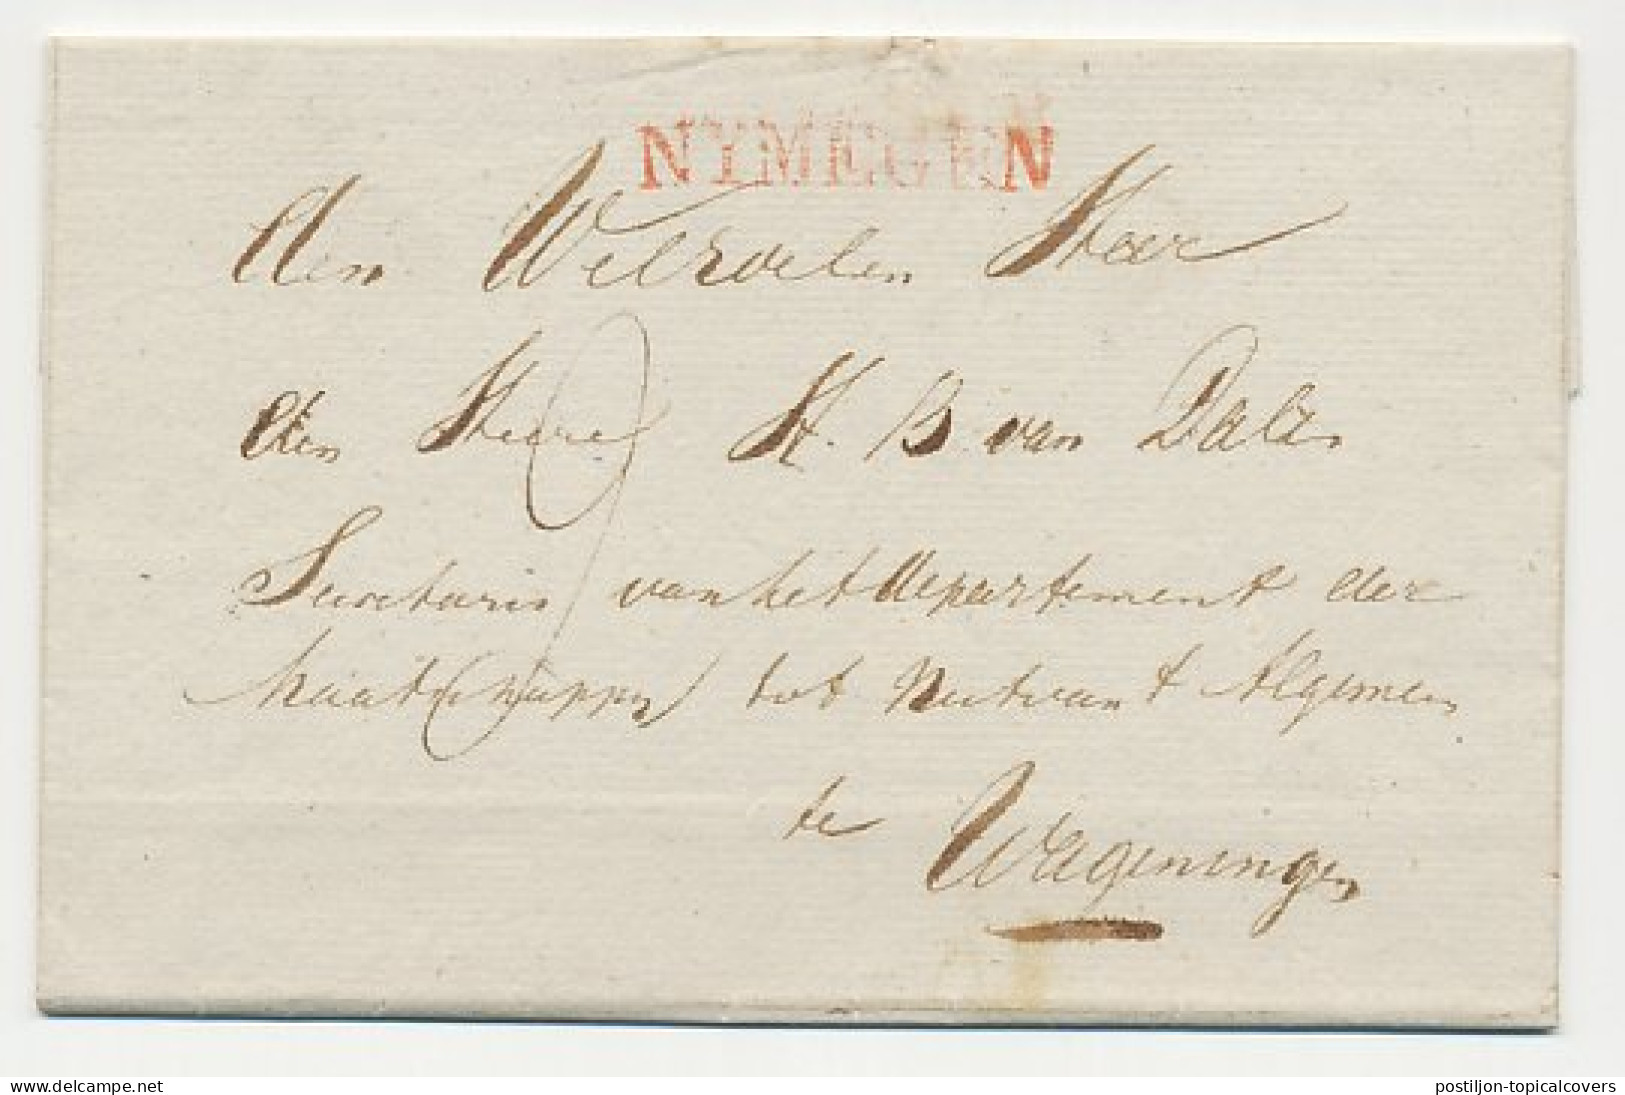 NYMEGEN
den Weledelen Heer
den Heere H. B. van Dalen
Secretaris van het departement der
Maatschappy tot Nut van t Algemeen
te Wageningen
www.delcampe.net
postiljon-topicalcovers